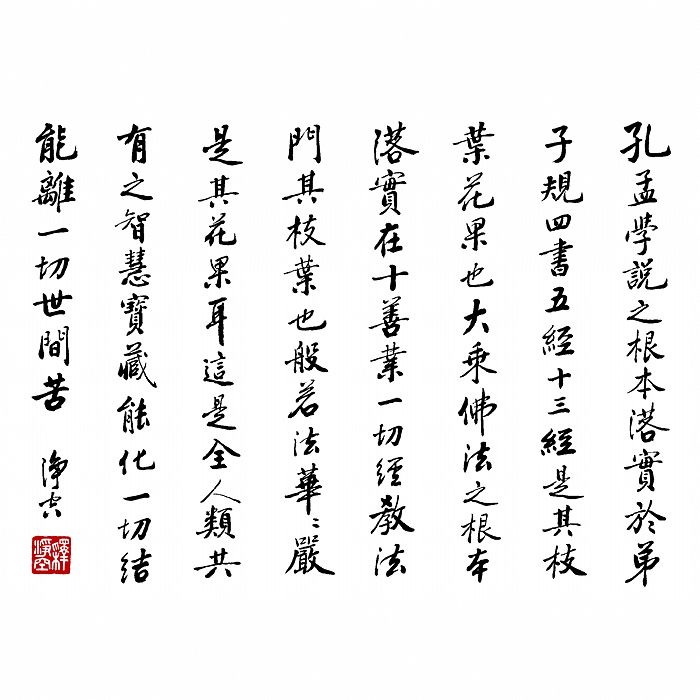 孔孟學說之根本落實於弟
子規四書五經十三經是其枝
葉花果也大乘佛法之根本
落實在十善業一切經教法
門其枝葉也般若法華〻嚴
是其花果耳這是全人類共
有之智慧寶藏能化一切結
能離一切世間苦
淨空
釋淨空